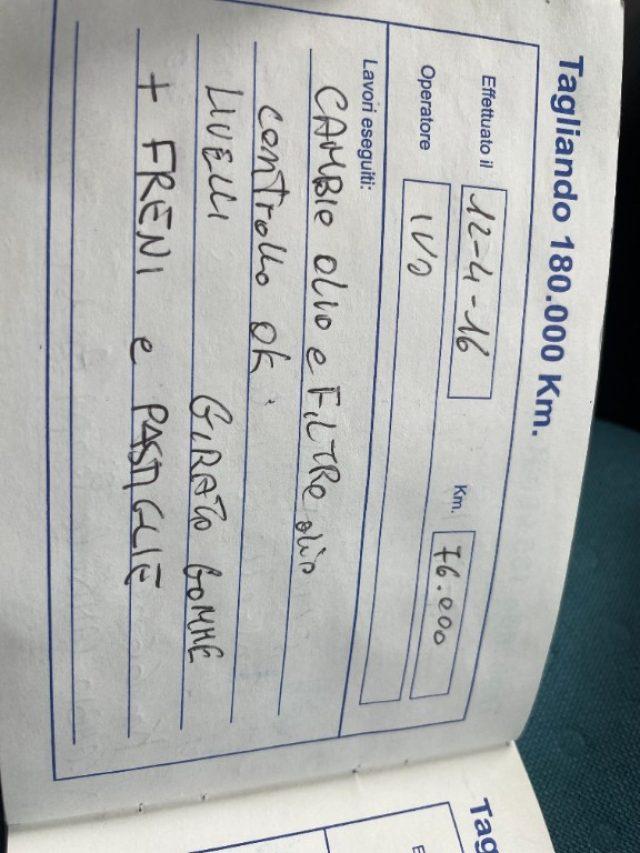 Tagliando 180.000 Km.
Effettuato il 12-4-16 Km. 76.000
Operatore IVO
Lavori eseguiti:
CAMBIO OLIO e FILTRO olio
controllo ok
LIVELLI GIRATO GOMME
+ FRENI e PASTIGLIE
Tag
E